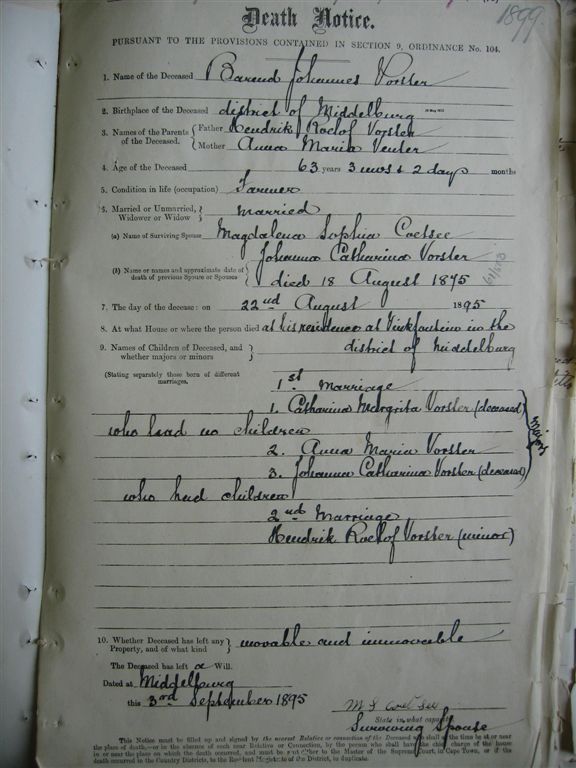 1899
Death Notice.
PURSUANT TO THE PROVISIONS CONTAINED IN SECTION 9, ORDINANCE No. 104.
1. Name of the Deceased Barend Johannes Vorster
2. Birthplace of the Deceased district of Middelburg
3. Names of the Parents of the Deceased. { Father Hendrik Roelof Vorster
Mother Anna Maria Venter
4. Age of the Deceased 63 years 3 mos & 2 days months
5. Condition in life (occupation) Farmer
6. Married or Unmarried, Widower or Widow } married
(a) Name of Surviving Spouse Magdalena Sophia Coetsee
Johanna Catharina Vorster
(b) Name or names and approximate date of death of previous Spouse or Spouses } died 18 August 1875
7. The day of the decease: on 22nd August 1895
8. At what House or where the person died at his residence at in the
district of Middelburg
9. Names of Children of Deceased, and whether majors or minors }
(Stating separately those born of different marriages.
1st Marriage
1. Catharina Margrita Vorster (deceased)
who had no children
2. Anna Maria Vorster
3. Johanna Catharina Vorster (deceased)
who had children
majors
2nd Marriage
Hendrik Roelof Vorster (minor)
10. Whether Deceased has left any Property, and of what kind } movable and immovable
The Deceased has left a Will.
Dated at Middelburg
this 3rd September 1895
M S Coetsee
State in what capacity
Surviving Spouse
This Notice must be filled up and signed by the nearest Relative or connection of the Deceased who shall at the time be at or near
the place of death,—or in the absence of such near Relative or Connection, by the person who shall have the chief charge of the house
in or near the place on which the death occurred, and must be sent either to the Master of the Supreme Court, in Cape Town, or if the
death occurred in the Country Districts, to the Resident Magistrate of the District, in duplicate.